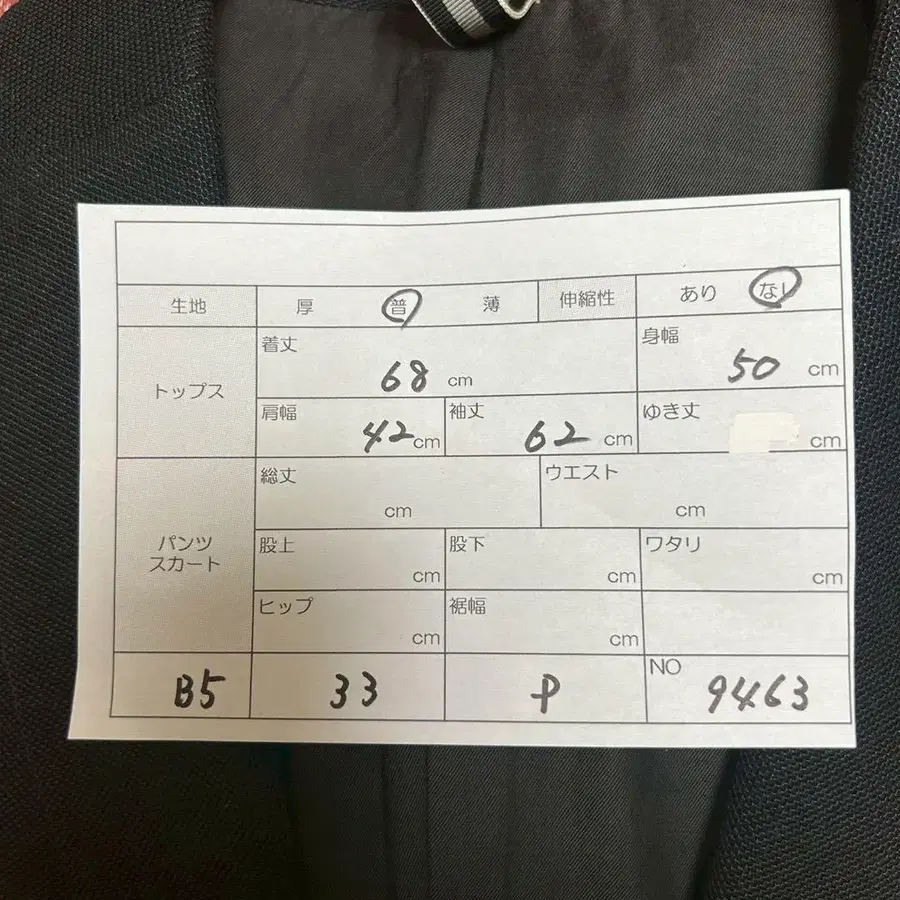 生地 厚 普 薄 伸縮性 あり なし
トップス
着丈 68 cm
身幅 50 cm
肩幅 42 cm
袖丈 62 cm
ゆき丈 cm
パンツ
スカート
総丈 cm
ウエスト cm
股上 cm
股下 cm
ワタリ cm
ヒップ cm
裾幅 cm
B5 33 P NO 9463